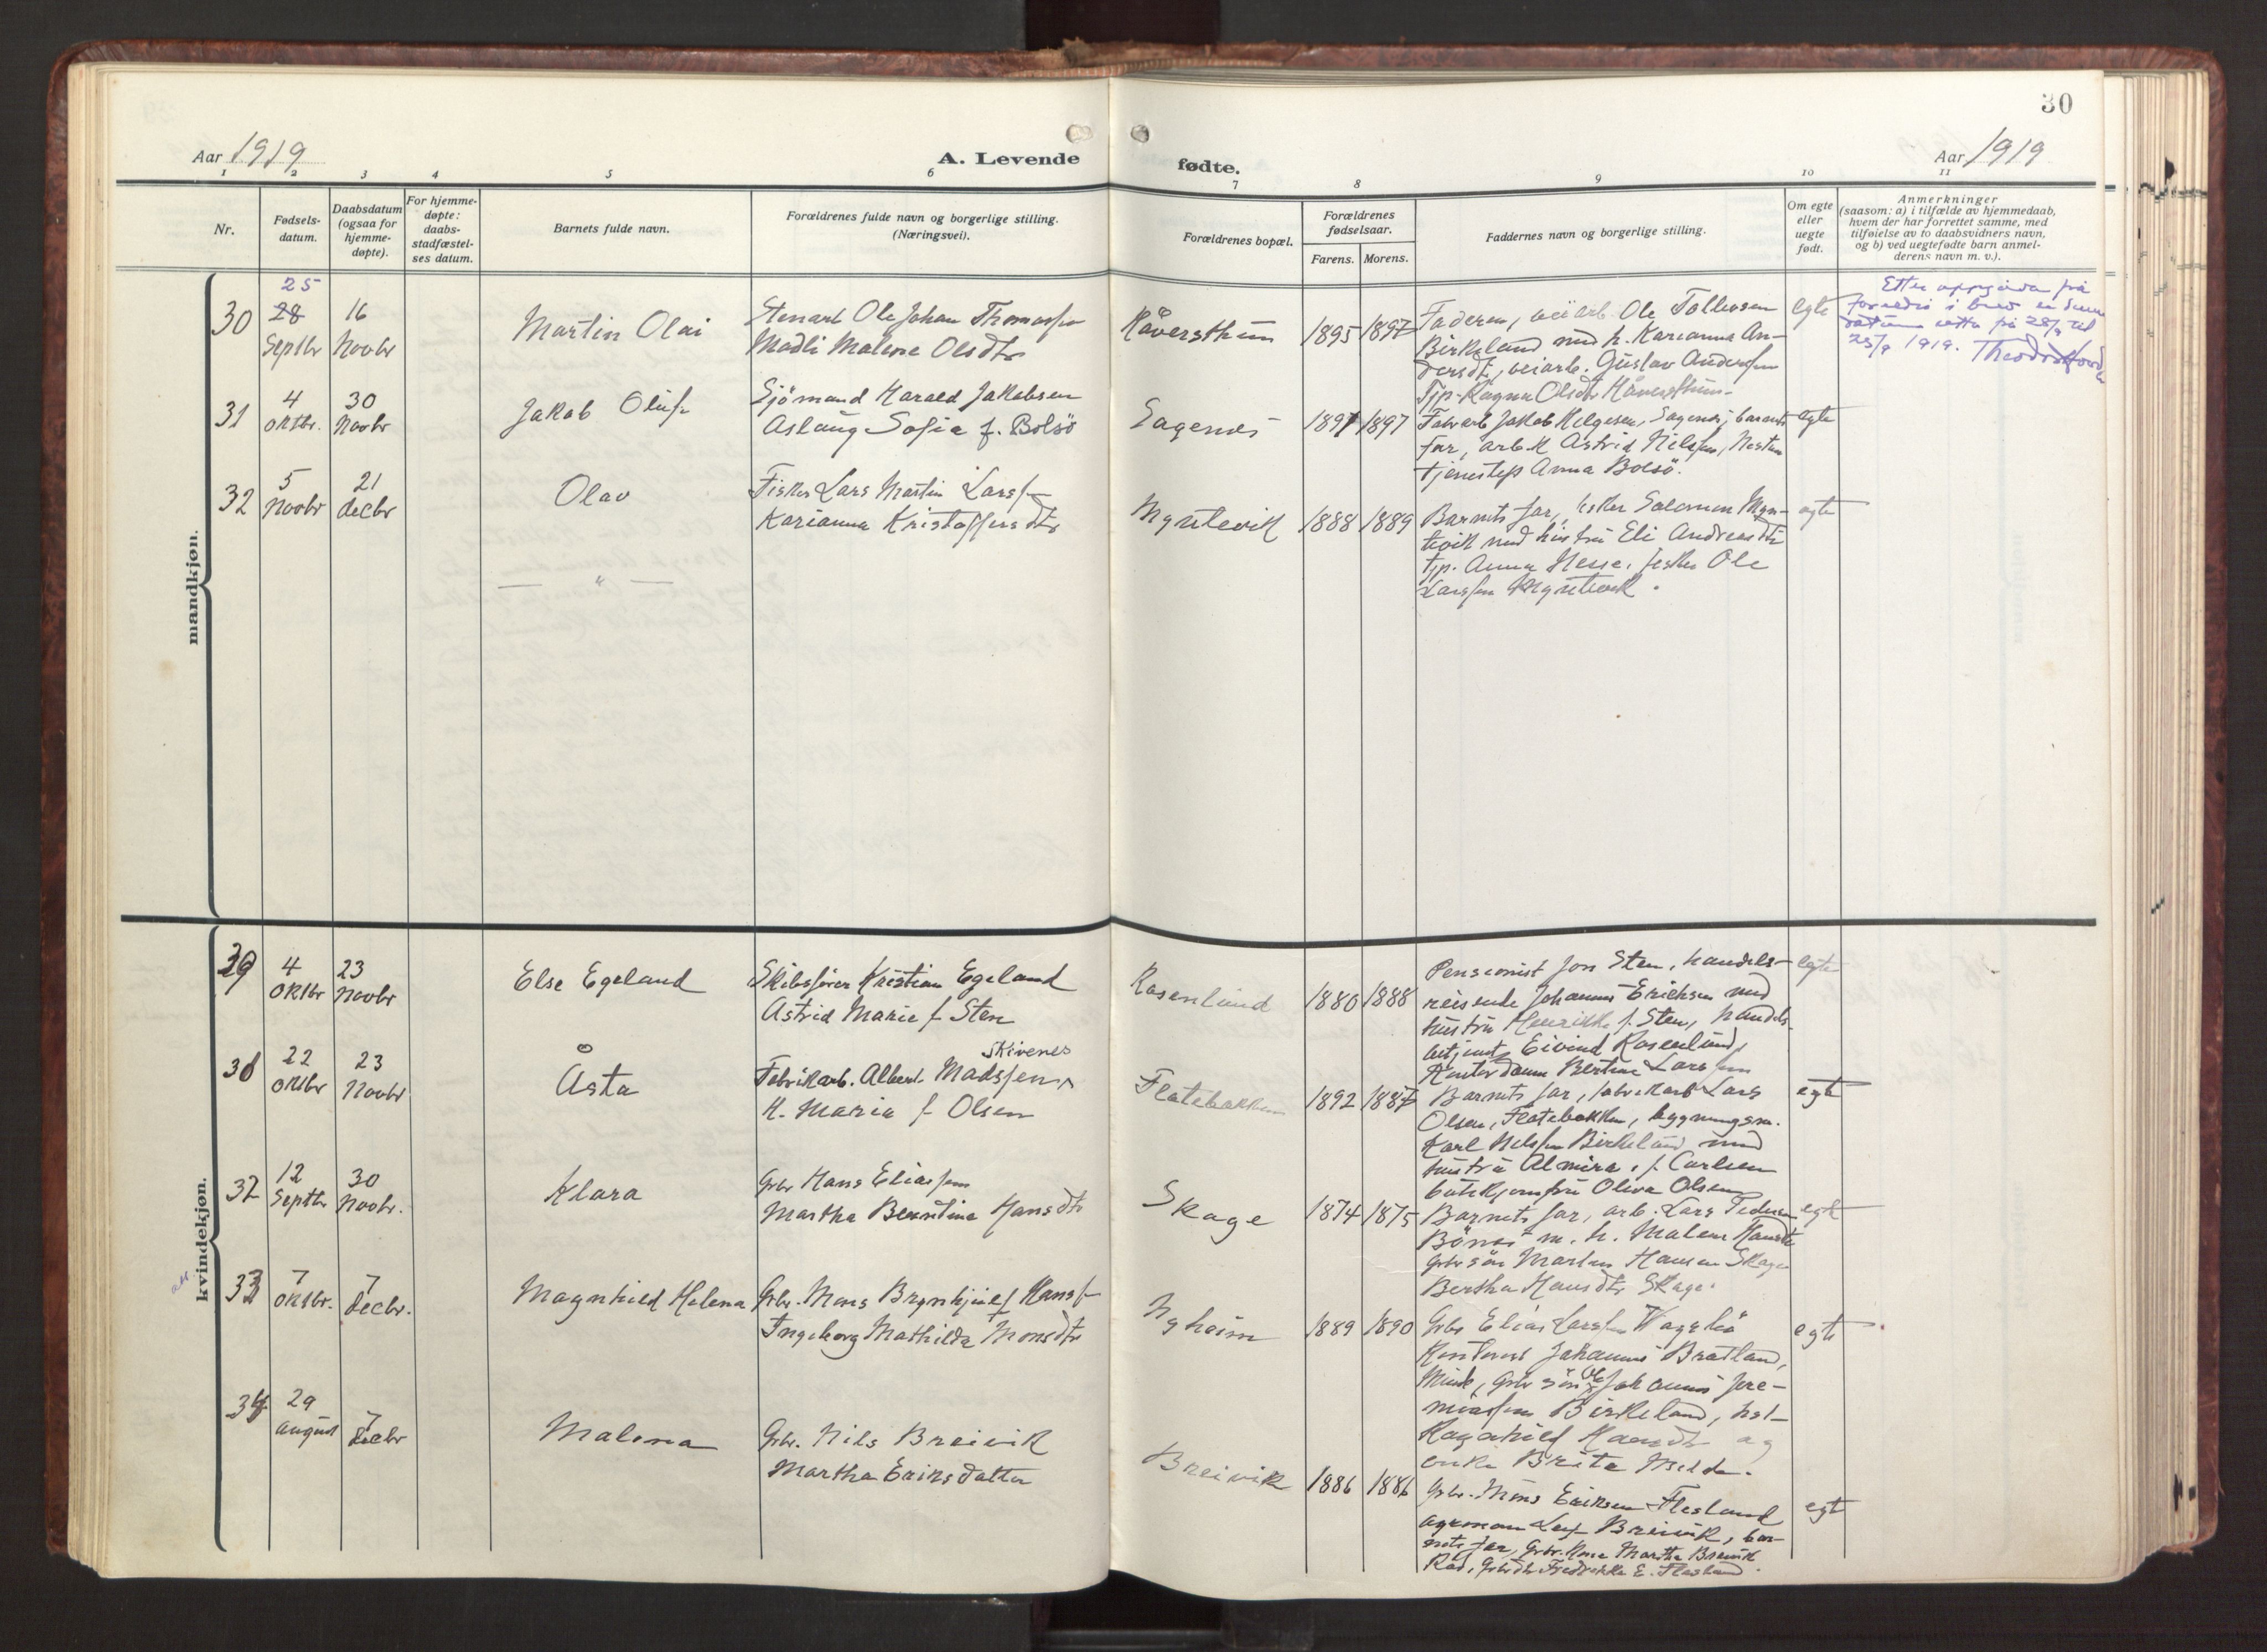 30
Aar 1919
A. Levende
fødte.
Aar 1919
1 2 3 4 5 6 7 8 9 10 11
Nr.
Fødsels-
datum.
Daabsdatum
(ogsaa for
hjemme-
døpte).
For hjemme-
døpte:
daabs-
stadfæstel-
ses datum.
Barnets fulde navn.
Forældrenes fulde navn og borgerlige stilling.
(Næringsvei).
Forældrenes bopæl.
Forældrenes
fødselsaar.
Farens. Morens.
Faddernes navn og borgerlige stilling.
Om egte
eller
uegte
født.
Anmerkninger
(saasom: a) i tilfælde av hjemmedaab,
hvem der har forrettet samme, med
tilføielse av to daabsvidners navn,
og b) ved uegtefødte barn anmel-
derens navn m. v.).
mandkjøn.
30
25
28
Septbr
16
Novbr
Martin Olai
Stenarb Ole Johan
Madli Malene Olsdtr
Råversthun
1895 1897
Faderen, veiarb. Ole Tollevsen
Birkeland med h. Karianna An-
dersdtr, veiarb. Gustav Anderssen
Tjp. Ragna Olsdtr
egte
Etter
på 28/9 til
25/9 1919.
31
4
Oktbr.
30
Novbr
Jakob Oluf
Sjömand Harald Jakobsen
Aslaug Sofie f. Bolsö
Sagenes
1897 1897
Fabrarb Jakob Helgesen, Sagenes, barnets
far, arb.k Astrid Nilssen, Nestun
tjenestep Anna Bolsö.
egte
32
5
Novbr
21
decbr
Olav
Fisker Lars Martin Larss
Karianna Kristoffersdtr
Myrtevik
1888 1889
Barnets far, fisker Salomon Myr-
tevik med hustru Eli Andreasdtr
tjp. Anna Hesse, fisker Ole
Larssen Myrtevik.
egte
— " —
kvindekjøn.
4
Oktbr
23
Novbr
Else Egeland
Skibsfører Kristian Egeland
Astrid Marie f. Sten
Rosenlund
1880 1888
Pensionist Jon Sten, handels-
reisende Johannes Erichsen med
hustru Henrikke f. Sten, handels-
betjent Eivind Rosenlund,
Kontordame Bertine Larssen
egte
22
Oktbr
23
Novbr
Åsta
Skivenes
Fabrikarb. Albert Madssen
H. Maria f. Olsen
Flatebakken
1892 1887
Barnets far, fabrikarb Lars
Olsen, Flatebakken, bygningsm.
Karl Nilssen Birkeland med
hustru Almira, f. Carlsen
butikjomfru Oliva Olsen
egte
32
12
Septbr
30
Novbr.
Klara
Grbr Hans Eliassen
Martha Berntine Hansdtr
Skage
1874 1875
Barnets far, arb. Lars Pedersen
Bönes m. h. Malene Hansdtr
Grbr sön Martin Hansen Skage
Bertha Hansdtr Skage.
egte
33
7
Oktbr.
7
decbr.
Magnhild Helena
Grbr. Mons Brynhjulf Hanss
Ingeborg Mathilda Monsdtr
Nyheim
1889 1890
Grbr Elias Larssen
Johannes Bratland,
Minde, Grbr sön Ole Johannes Jere-
miassen Birkeland,
Ragnhild Hansdtr og
enke Brita Milde.
egte
34
29
august
7
decbr
Malena
Grbr. Nils Breivik
Martha Eriksdatter
Breivik
1886 1886
Grbr. Mons Eriksen Flesland
Leif Breivik, bar-
nets far, Grbr. Kone Martha Breivik
Råd, Grbrdtr Fredrikke E. Flesland.
egte